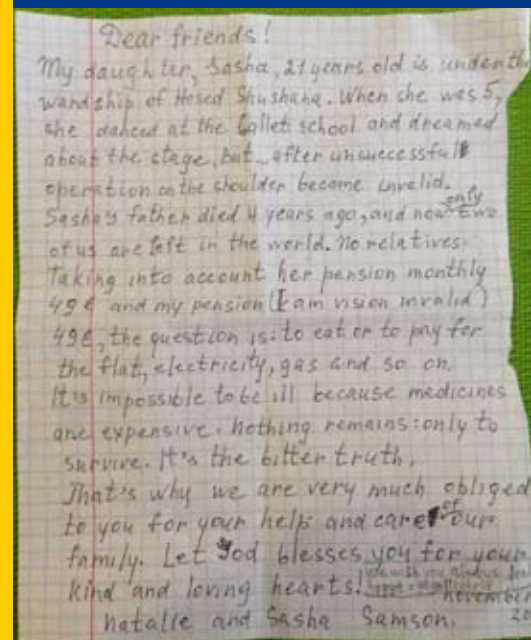 Dear friends!
My daughter, Sasha, 21 years old is under the
wardship of Hesed Shushana. When she was 5,
she danced at the ballet school and dreamed
about the stage, but.. after unsuccessfull
operation on the shoulder become invalid.
only
Sasha's father died 4 years ago, and now two
of us are left in the world. No relatives.
Taking into account her pension monthly
49€ and my pension (I am vision invalid)
49€, the question is: to eat or to pay for
the flat, electricity, gas and so on.
It's impossible to be ill because medicines
are expensive. Nothing remains: only to
survive. It's the bitter truth.
That's why we are very much obliged
to you for your help and care of our
family. Let God blesses you for your
kind and loving hearts!
november
natalie and Sasha Samson.